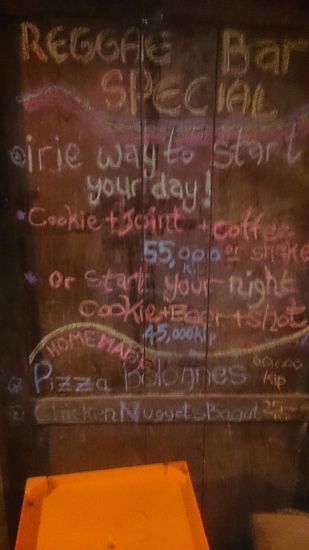 REGGAE Bar
SPECIAL
@irie way to start
your day!
* Cookie + Joint + coffee
55,000 or shake
Kip
* Or Start your night
Cookie + Beer + Shot
45,000 Kip
HOMEMADE
@ Pizza Bolognes 60,000
Kip
@ Chicken Nuggets Bagut